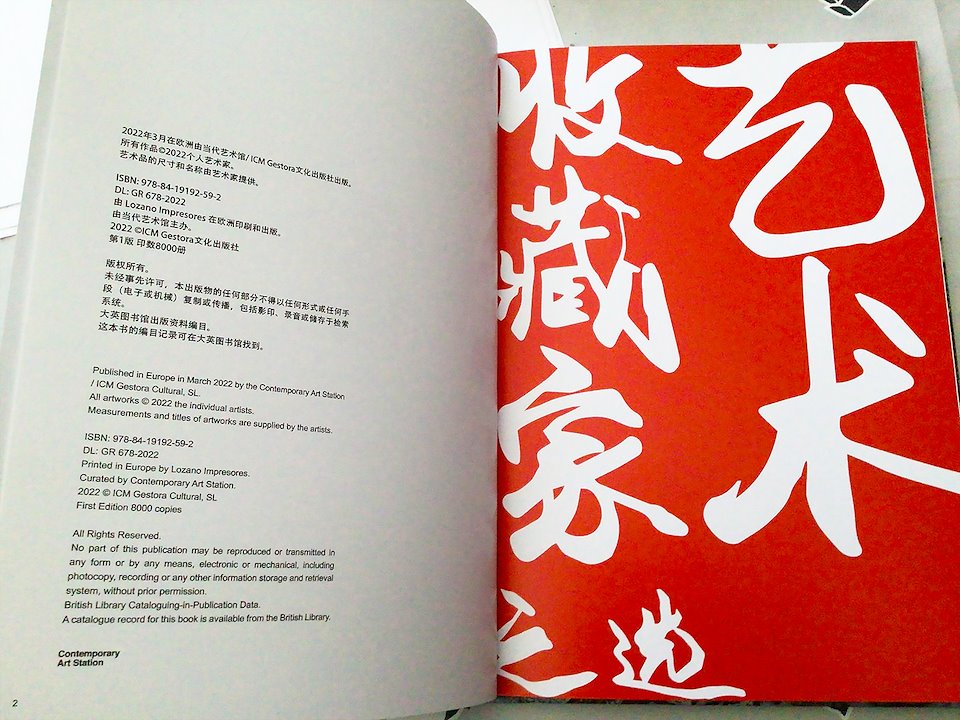 2022年3月在欧洲由当代艺术馆/ ICM Gestora文化出版社出版。
所有作品©2022个人艺术家。
艺术品的尺寸和名称由艺术家提供。
ISBN: 978-84-19192-59-2
DL: GR 678-2022
由 Lozano Impresores 在欧洲印刷和出版。
由当代艺术馆主办。
2022 ©ICM Gestora文化出版社
第1版 印数8000册
版权所有。
未经事先许可，本出版物的任何部分不得以任何形式或任何手
段（电子或机械）复制或传播，包括影印、录音或储存于检索
系统。
大英图书馆出版资料编目。
这本书的编目记录可在大英图书馆找到。
Published in Europe in March 2022 by the Contemporary Art Station
/ ICM Gestora Cultural, SL.
All artworks © 2022 the individual artists.
Measurements and titles of artworks are supplied by the artists.
ISBN: 978-84-19192-59-2
DL: GR 678-2022
Printed in Europe by Lozano Impresores.
Curated by Contemporary Art Station.
2022 © ICM Gestora Cultural, SL
First Edition 8000 copies
All Rights Reserved.
No part of this publication may be reproduced or transmitted in
any form or by any means, electronic or mechanical, including
photocopy, recording or any other information storage and retrieval
system, without prior permission.
British Library Cataloguing-in-Publication Data.
A catalogue record for this book is available from the British Library.
Contemporary
Art Station
2
艺术
收藏家
之选